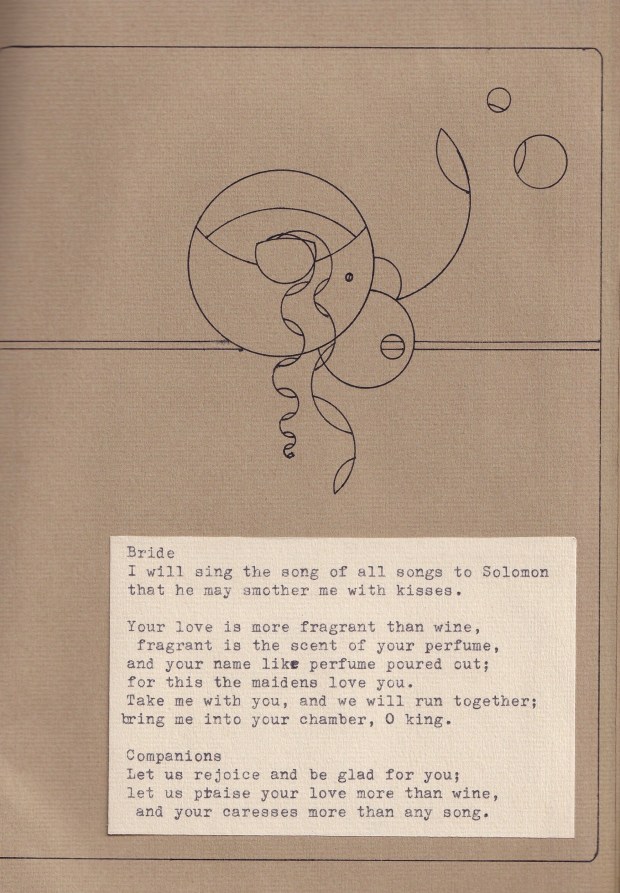 Bride
I will sing the song of all songs to Solomon
that he may smother me with kisses.
Your love is more fragrant than wine,
fragrant is the scent of your perfume,
and your name like perfume poured out;
for this the maidens love you.
Take me with you, and we will run together;
bring me into your chamber, O king.
Companions
Let us rejoice and be glad for you;
let us praise your love more than wine,
and your caresses more than any song.